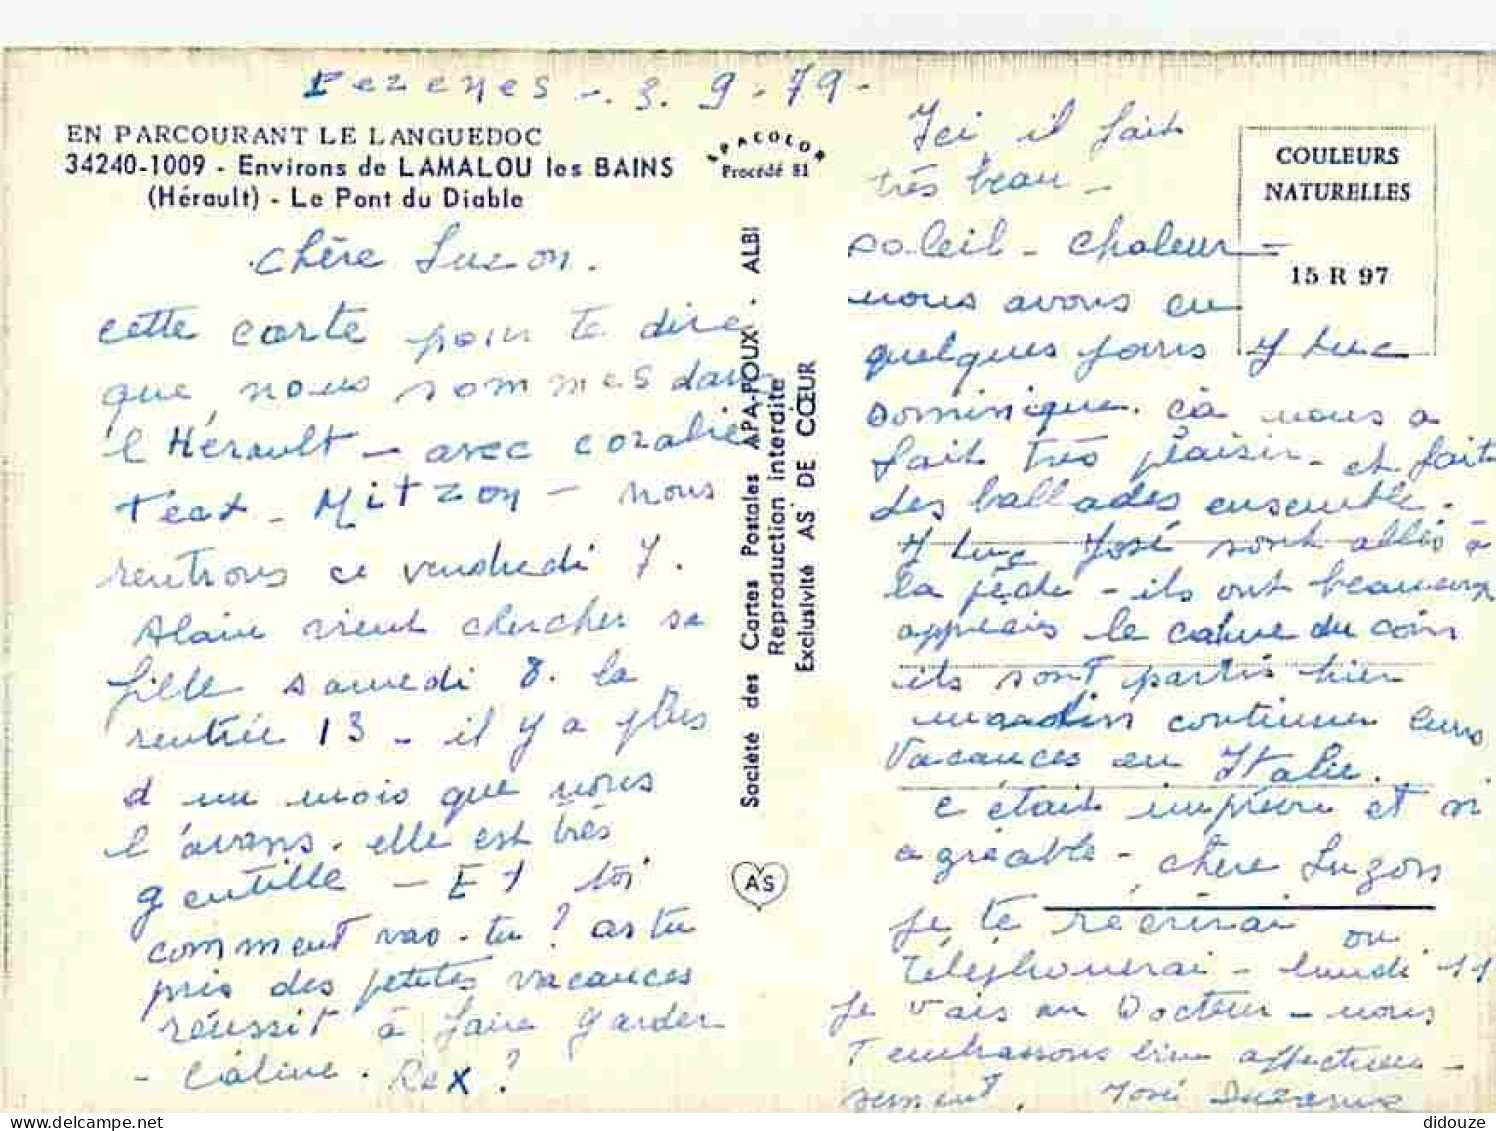 Pezenes -. 3. 9 - 79 -
EN PARCOURANT LE LANGUEDOC
34240-1009 - Environs de LAMALOU les BAINS
(Hérault) - Le Pont du Diable
APACOLOR
Procédé 81
COULEURS
NATURELLES
15 R 97
Chère Suzon.
cette carte pour te dire
que nous sommes dans
l'Hérault - avec coralie
Teax - Mitzou - nous
rentrons ce vendredi 7.
Alain vient chercher sa
fille samedi 8. la
rentrée 13 - il y a plus
d un mois que nous
l'avons. elle est très
gentille - Et toi
comment vas-tu ? as tu
pris des petites vacances
réussit à faire garder
- Caline. Rex ?
Société des Cartes Postales APA-POUX - ALBI
Reproduction interdite
Exclusivité AS DE CŒUR
AS
Ici il fait
très beau -
soleil - chaleur -
nous avons eu
quelques jours J Luc
Dominique. cà nous a
fait très plaisir - et fait
des ballades ensemble.
J Luc José sont allés à
la pêche - ils ont beaucoup
appréciés le calme du coin
ils sont partis hier
matin continuer leurs
vacances en Italie.
c était imprévu et si
agréable - chère Suzon
je te récrirai ou
téléphonerai - lundi 11
je vais au Docteur - nous
T embrassons bien affectueu-
sement. José Suzanne
didouze